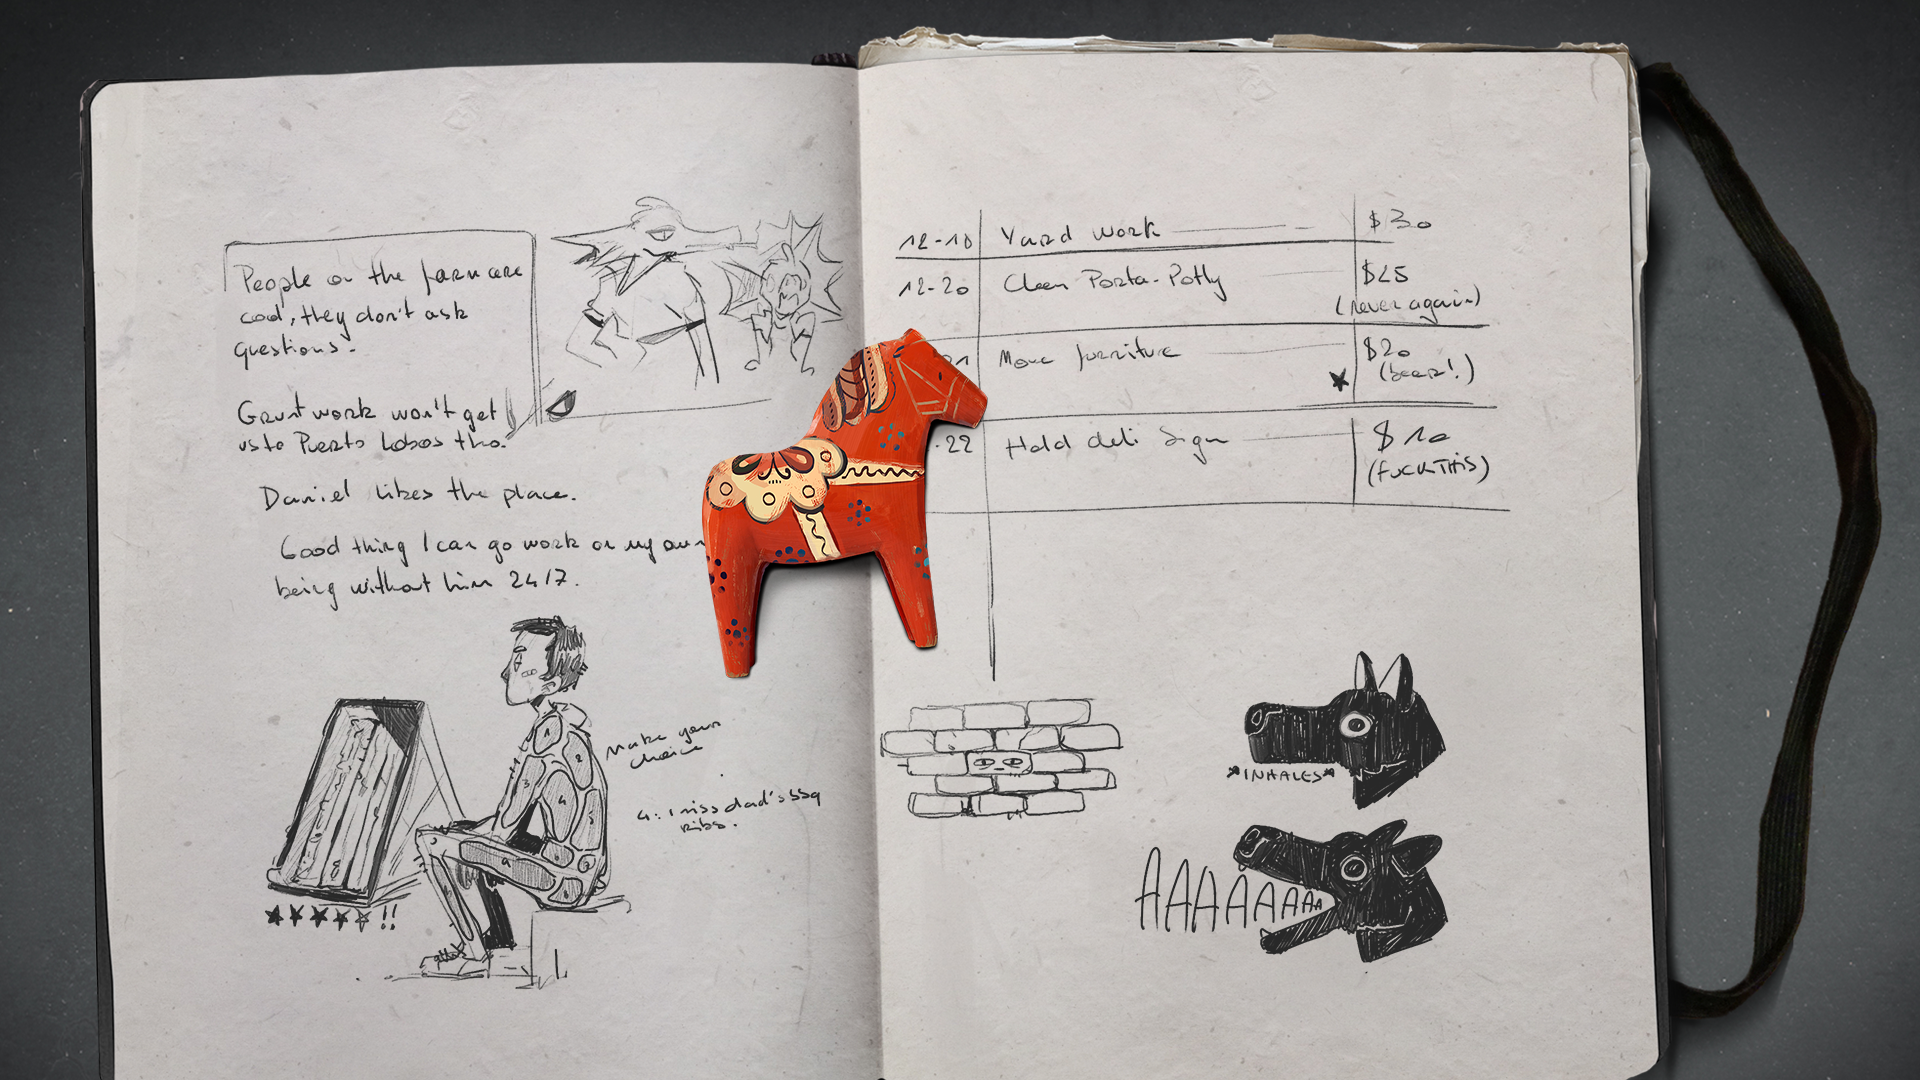 People on the farm are
cool, they don't ask
questions.
Grunt work won't get
us to Puerto Lobos tho.
Daniel likes the place.
Good thing I can go work on my own
being without him 24/7.
Make your
choice
4: I miss dad's BBQ
ribs.
1
2
3
4
5
9
12-18 Yard work $30
12-20 Clean Porta-Potty $25
(never again)
21 Move furniture $20
(beer!)
.22 Hold deli sign $10
(FUCK THIS)
*INHALES*
AAAAAAAAA
!!